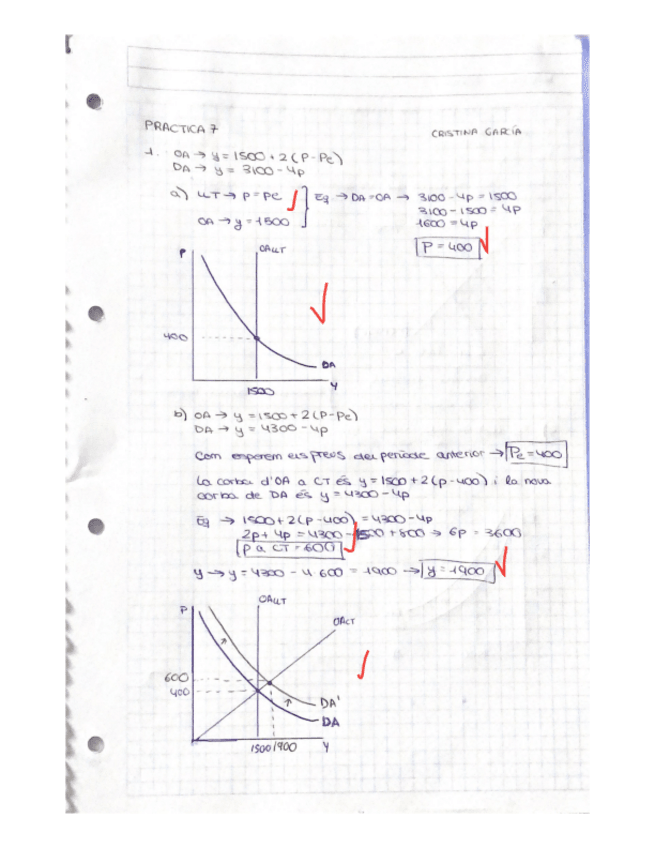 PRACTICA 7
CRISTINA GARCÍA
1. OA → y = 1500 + 2(P - Pe)
DA → y = 3100 - 4p
a) LLT → P = Pe
OA → y = 1500
Eq → DA = OA → 3100 - 4p = 1500
3100 - 1500 = 4p
1600 = 4p
P = 400
P
OALLT
400
DA
1500
Y
b) OA → y = 1500 + 2(P - Pe)
DA → y = 4300 - 4p
Com esperem els preus del període anterior → Pe = 400
La corba d'OA a CT és y = 1500 + 2(p - 400) i la nova
corba de DA és y = 4300 - 4p
Eq → 1500 + 2(p - 400) = 4300 - 4p
2p + 4p = 4300 - 1500 + 800 → 6p = 3600
p a CT = 600
y → y = 4300 - 4 600 = 1900 → y = 1900
P
OALLT
OACT
600
400
DA'
DA
1500 1900
Y